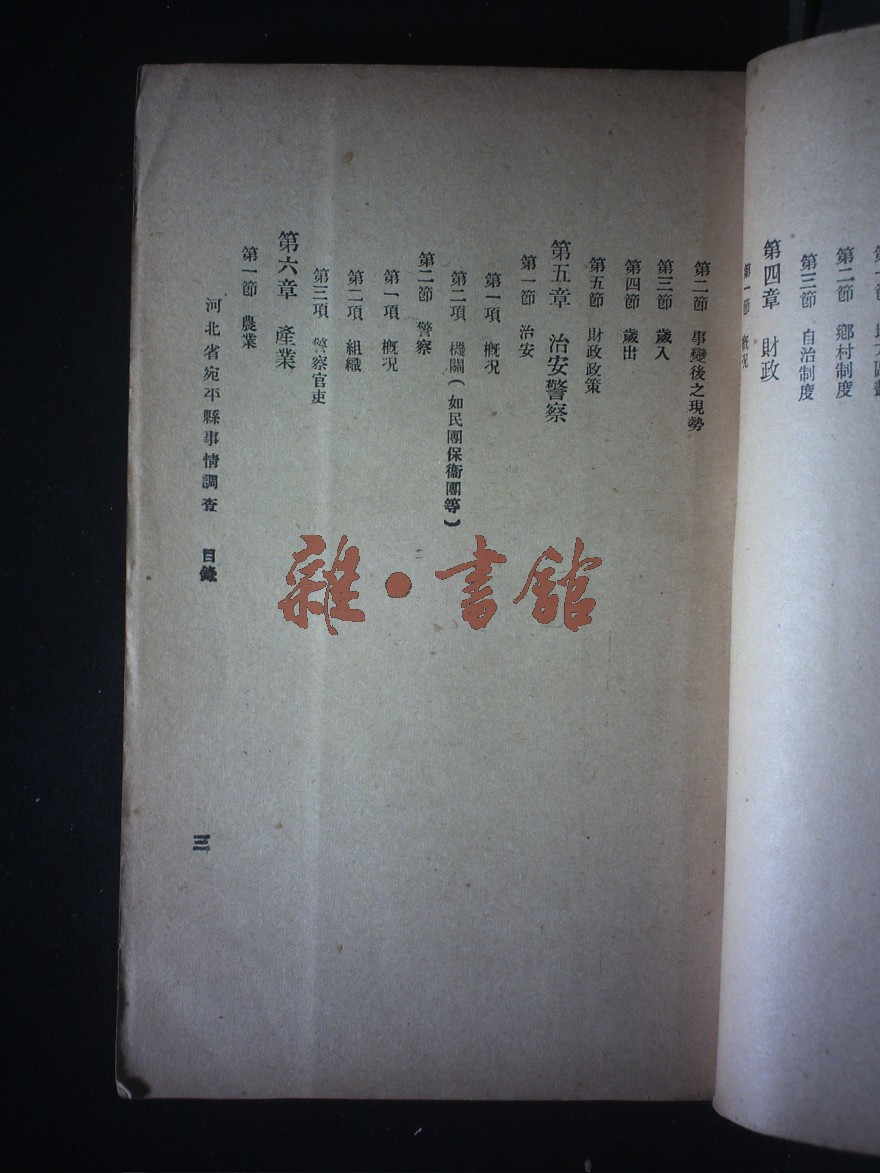 第二節 鄉村制度
第三節 自治制度
第四章 財政
第一節 概況
第二節 事變後之現勢
第三節 歲入
第四節 歲出
第五節 財政政策
第五章 治安警察
第一節 治安
第一項 概況
第二項 機關(如民團保衞團等)
第二節 警察
第一項 概況
第二項 組織
第三項 警察官吏
第六章 產業
第一節 農業
河北省宛平縣事情調查 目錄
三
雜·書館